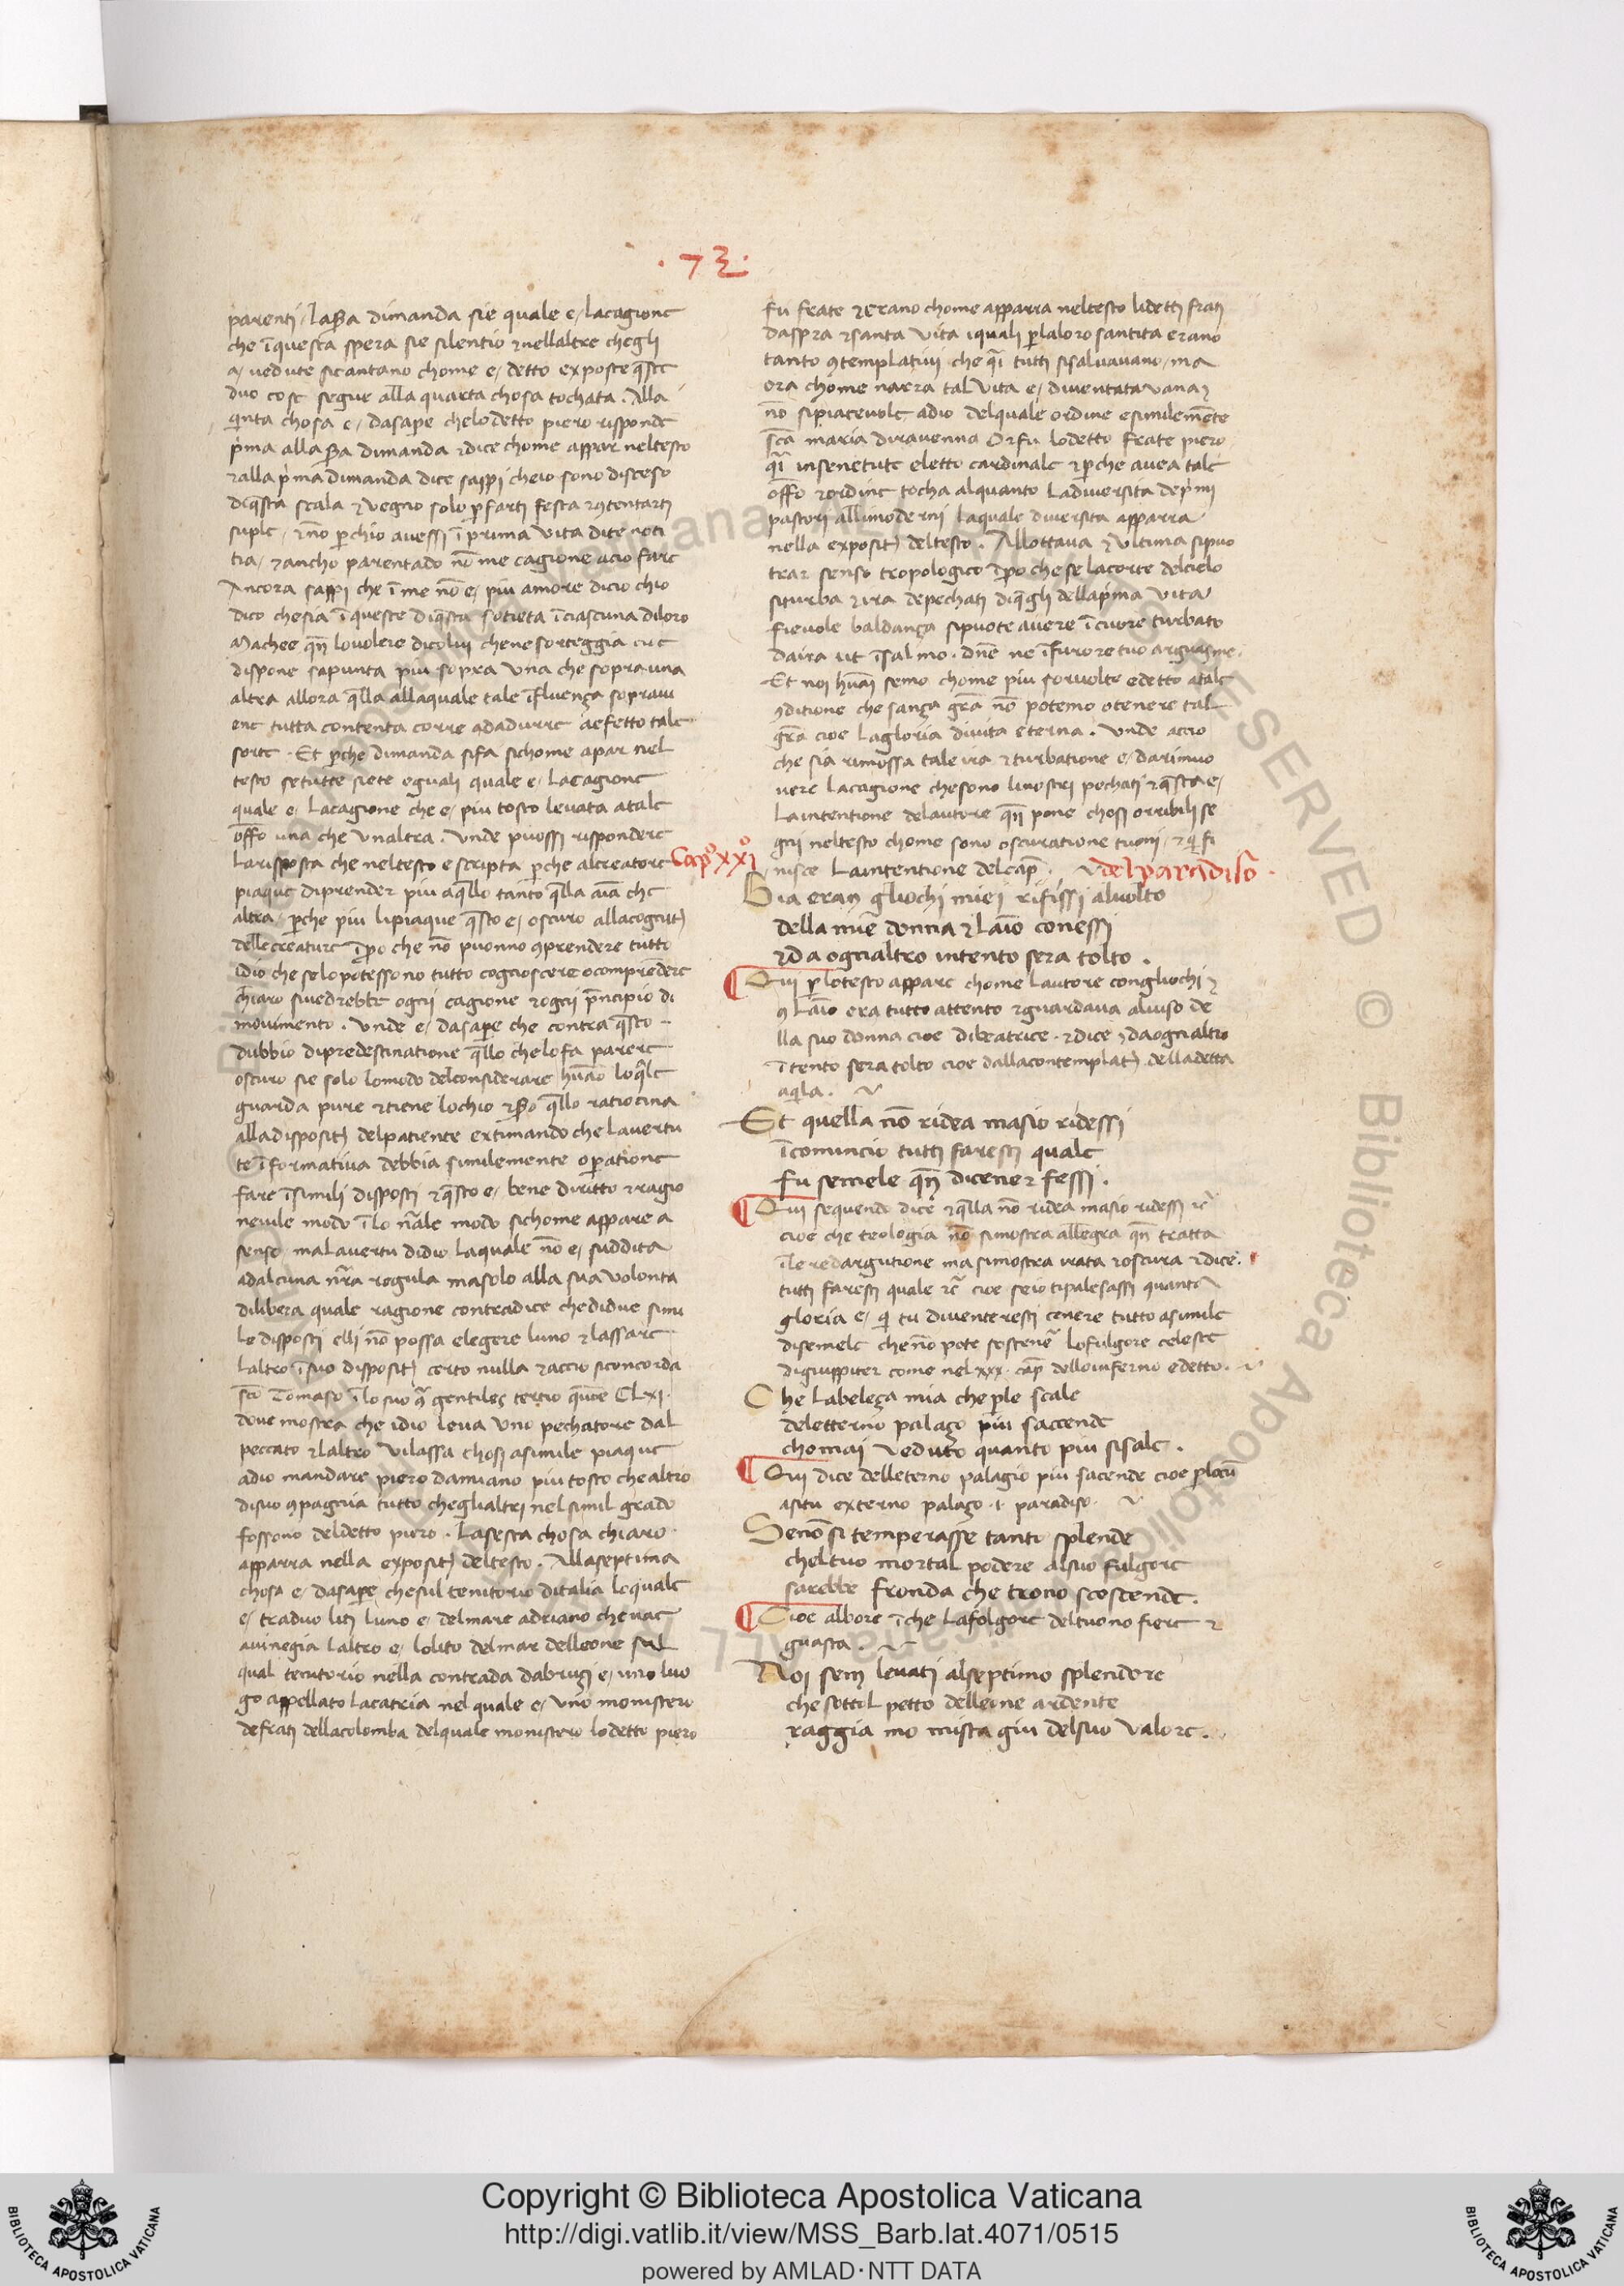 · 73 ·
parenti / la 2a dimanda sie quale e / lacagione
che ī questa spera sie silentio ⁊ nellaltre chegli
a / vedute sicantano chome e / detto exposte q̄ste
duo cose segue alla quarta chosa tochata . Alla
q̄nta chosa e / dasap̄e chelodetto piero risponde
p̄ma alla 2a dimanda ⁊ dice chome appar neltesto
⁊ alla p̄ma dimanda dice sappi cheio sono disceso
diq̄sta scala ⁊ vegno solo p̄ farti festa ⁊ ꝯtentarti
⁊ nō p̄ chio avessi ī prima vita dite noti
tia / ⁊ ancho parentado nō me cagione acio fare
Ancora sappi che ī me nō e / piu amore dicio chio
dico chesia ī queste diq̄sta sotieta ī ciascuna diloro
Machee qn̄ lovolere dicolui chene sorteggia
dispone sapunta piu sopra una che sopra una
altra allora q̄lla allaquale tale īfluença sopraui
ene tutta contenta corre adadurre aefetto tale
sorte . Et p̄che dimanda sifa sichome apar nel
testo setutte siete eguali quale e / lacagione
quale e / lacagione che e / piu tosto levata atale
offō una che unaltra . Unde puossi rispondere
larisposta che neltesto e scripta p̄che alcreatore
piaque diprender piu aq̄llo tanto q̄lla aīa che
altra / p̄che piu lipiaque q̄sto e / oscuro allacognit̄
dellecreature īp̄o che nō puonno ꝯprendere tutto
idio che selo potessono tutto cognoscere o comprēdere
chiaro sivedrebbe ogni cagione ⁊ ogni p̄ncipio di
movimento . Unde e / dasap̄e che contra q̄sto
dubbio dipredestinatione q̄llo chelofa parere
oscuro sie solo lomodo delconsiderare hūano loq̄le
guarda pure ⁊ tiene lochio ⁊ 2o q̄llo ratiocina
alladisposit̄ delpatiente extimando che lavertu
te īformativa debbia similemente op̄atione
fare ī simili disposti ⁊ q̄sto e / bene diritto ⁊ ragio
nevile modo ī lo n̄ale modo sichome appare a
senso / malavertu didio laquale nō e / suddita
adalcuna n̄ra regula masolo alla sua volonta
dilibera quale ragione contradice chedidue simi
le disposti elli nō possa elegere luno ⁊ lassare
laltro ī suo disposit̄ certo nulla ⁊ accio siconcorda
sc̄o Tomaso ī lo suo ꝯ̄ gentiles tertio q̄ure CLxi .
dove mostra che idio leva uno pechatore dal
peccato ⁊ laltro vilassa chosi asimile piaque
adio mandare piero damiano piu tosto che altro
disuo ꝯpagnia tutto cheglialtri nel simil grado
fossono deldetto piero . Lasesta chosa chiaro
apparra nella exposit̄ deltesto . Allaseptima
chosa e / dasap̄e chesul teritorio ditalia loquale
e / traduo liti luno e / delmare adriano che vae
avinegia laltro e / lolito delmar delleone sul
qual teritorio nella contrada dabruzi e / uno luo
go appellato lacatria nel quale e / uno monistero
defrati dellacolomba delquale monistero lodetto piero
fu frate ⁊ erano chome apparra neltesto lidetti frati
daspra ⁊ santa vita iquali p̄ laloro santita erano
tanto ꝯtemplativi che q̄i tutti sisalvavano / ma
ora chome narra tal vita e / diventata vana ⁊
nō sipiacevole adio delquale ordine esimilemēte
sc̄a maria diravenna Or fu lodetto frate piero
q̄i insenetute eletto cardinale ⁊ p̄che avea tale
offō ⁊ ordine tocha alquanto ladiversita dep̄mi
pastori allimoderni laquale diversita apparra
nella exposit̄ deltesto . Allottava ⁊ ultima sipuo
trar senso tropologico īp̄o che se lacorte delcielo
siturba ⁊ ira depechati diq̄gli dellap̄ma vita
fievole baldança sipuote avere ī cuore turbato
daira ut ī salmo . dn̄e ne ī furore tuo arguas me .
Et noi hūai semo chome piu forvolte edetto atale
ꝯditione che sança gr̄a nō potemo otenere tal
gr̄a cioe lagloria divita eterna . Unde accio
che sia rimossa tale ira ⁊ turbatione e / darimuo
vere lacagione chesono linostri pechati ⁊ q̄sta e /
laintentione delautore qn̄ pone chosi orribili se
gni neltesto chome sono oscuratione tuoni / ⁊ q̄ fi
nisce laintentione delcap̄ .
Cap̊ xxi̊ del paradiso .
Gia eran gliochi miei rifissi alvolto
della mie donna ⁊ laīo con essi
⁊ da ognialtro intento sera tolto .
Qui p̄ lotesto appare chome lautore congliochi ⁊
ꝯ laīo era tutto attento ⁊ guardava alviso de
lla suo donna cioe dibeatrice . ⁊ dice ⁊ da ognialtro
ī tento sera tolto cioe dallacontemplat̄ delladetta
aq̄la .
Et quella nō ridea masio ridessi
ī comincio tutti faresti quale
fu semele qn̄ dicener fessi .
Qui sequendo dice ⁊ q̄lla nō ridea masio ridessi ⁊c̄
cioe che teologia nō simostra allegra qn̄ tratta
ī le redargutione ma simostra irata ⁊ oscura ⁊ dice .
tutti faresti quale ⁊c̄ cioe seio tipalesassi quanta
gloria e / q̄ tu diventeresti cenere tutto asimile
disemele chenō pote sostener̄ lofulgore celeste
digiuppiter come nel xxx . cap̄ delloinferno edetto .
Che labeleça mia che p̄ le scale
deletterno palaço piu saccende
chomai veduto quanto piu sisale .
Qui dice delleterno palagio piu sacende cioe p̄ locū
asitu externo palaço . i . paradiso .
Senō si temperasse tanto splende
cheltuo mortal podere alsuo fulgore
sarebbe fronda che trono scoscende .
Cioe albore ī che lafolgore deltuono fiere ⁊
guasta .
Noi sem levati alseptimo splendore
che sottol petto delleone ardente
raggia mo mista giu delsuo valore .
Copyright © Biblioteca Apostolica Vaticana
http://digi.vatlib.it/view/MSS_Barb.lat.4071/0515
powered by AMLAD·NTT DATA
BIBLIOTECA APOSTOLICA VATICANA
BIBLIOTECA APOSTOLICA VATICANA